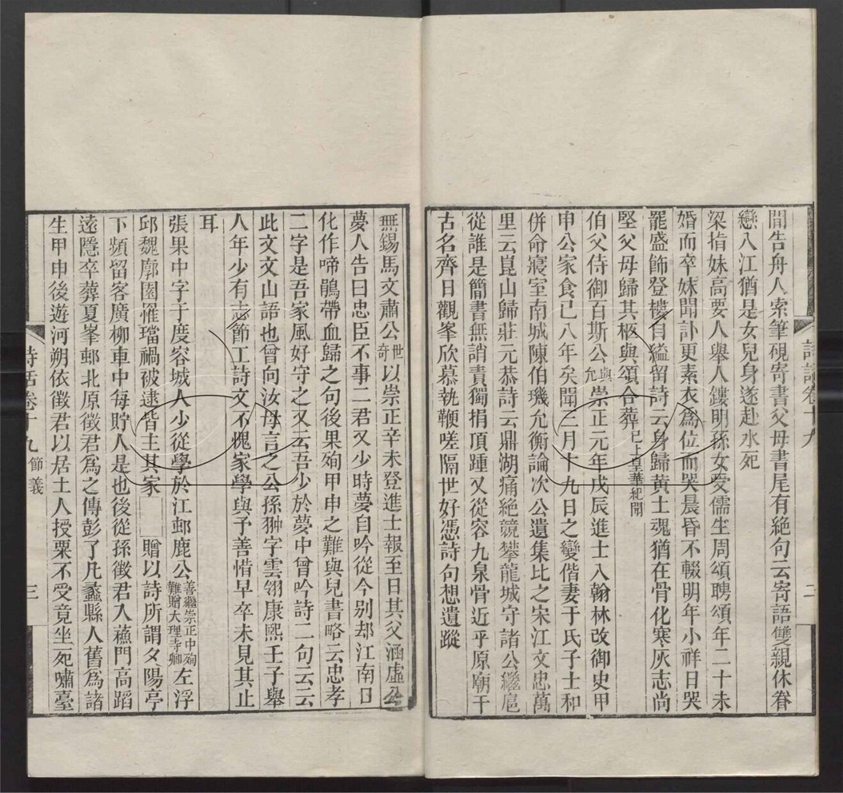 間告舟人索筆硯寄書父母書尾有絶句云寄語雙親休眷
戀入江猶是女兒身遂赴水死
梁指妹高要人舉人鏤明孫女受儒生周頌聘頌年二十未
婚而卒妹聞訃更素衣為位而哭晨昏不輟明年小祥日哭
罷盛飾登樓自縊留詩云身歸黄土魂猶在骨化寒灰志尚
堅父母歸其柩與頌合葬已上皇華紀聞
伯父侍御百斯公與允崇正元年戊辰進士入翰林改御史甲
申公家食已八年矣聞三月十九日之變偕妻于氏子士和
併命寢室南城陳伯璣允衡論次公遺集比之宋江文忠萬
里云崑山歸莊元恭詩云鼎湖痛絶競攀龍城守諸公繼扈
從誰是簡書無誚責獨捐頂踵又從容九泉骨近乎原廟千
古名齊日觀峯欣慕執鞭嗟隔世好憑詩句想遺蹤
詩話卷十九
二
無錫馬文肅公世奇以崇正辛未登進士報至日其父涵虛公
夢人告曰忠臣不事二君又少時夢自吟從今别却江南日
化作啼鵑帶血歸之句後果殉甲申之難與兒書略云忠孝
二字是吾家風好守之又云吾少於夢中曾吟詩二句云云
此文文山語也曾向汝母言之公孫翀字雲翎康熙壬子舉
人年少有志節工詩文不愧家學與予善惜早卒未見其止
耳
張果中字于度容城人少從學於江邨鹿公善繼崇正中殉難贈大理寺卿左浮
邱魏廓園罹璫禍被逮皆主其家 贈以詩所謂夕陽亭
下頻留客廣柳車中每貯人是也後從孫徵君入蘓門高蹈
遠隱卒葬夏峯邨北原徵君為之傳彭了凡蠡縣人舊為諸
生甲申後遊河朔依徵君以居土人授粟不受竟坐死嘯臺
詩話卷十九 節義
三